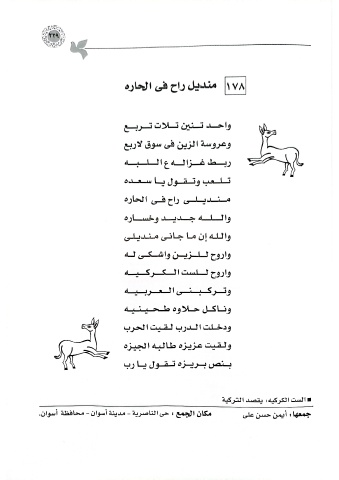 ٢٢٩
١٧٨ منديل راح فى الحاره
واحد تنين تلات تربع
وعروسة الزين فى سوق لاربع
ربط غزاله ع اللبه
تلعب وتقول يا سعده
منديلى راح فى الحاره
والله جديد وخساره
والله إن ما جانى منديلى
واروح للزين واشكى له
واروح للست الكركيه
وتركبنى العربيه
وناكل حلاوه طحينيه
ودخلت الدرب لقيت الحرب
ولقيت عزيزه طالبه الجيزه
بنص بريزه تقول يا رب
الست الكركيه: يقصد التركية
جمعها: أيمن حسن على مكان الجمع: حى الناصرية - مدينة أسوان - محافظة أسوان.